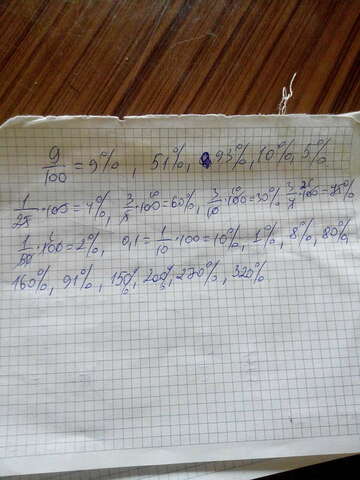 9/100 = 9%, 51%, 93%, 10%, 5%
1/25 · 100 = 4%, 3/5 · 100 = 60%, 3/10 · 100 = 30%, 3/4 · 100 = 75%
1/50 · 100 = 2%, 0,1 = 1/10 · 100 = 10%, 1%, 8%, 80%,
160%, 91%, 150%, 200%, 270%, 320%